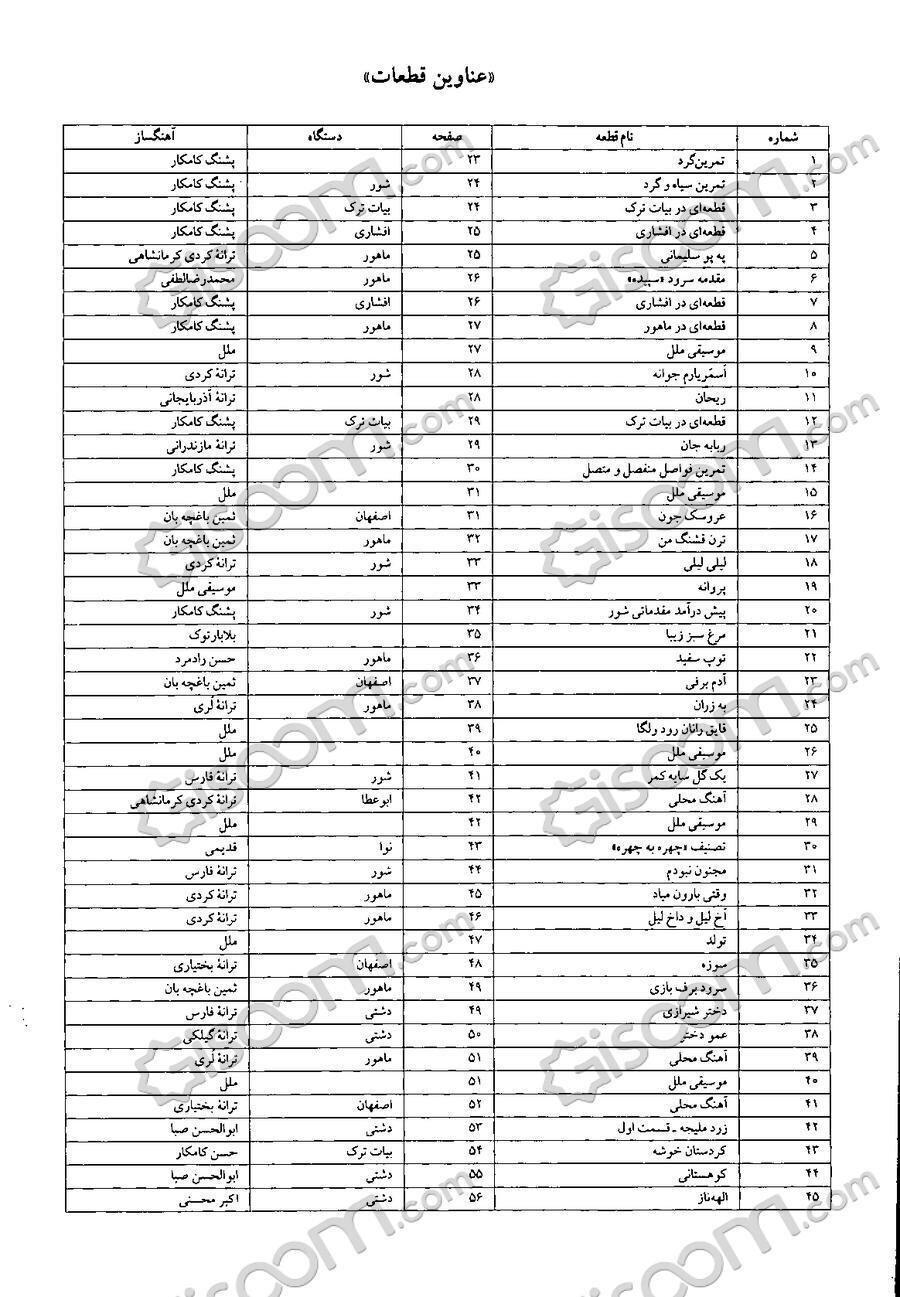 «عناوین قطعات»
شماره نام قطعه صفحه دستگاه آهنگساز
۱ تمرین گرد ۲۳ پشنگ کامکار
۲ تمرین سیاه و گرد ۲۴ شور پشنگ کامکار
۳ قطعه‌ای در بیات ترک ۲۴ بیات ترک پشنگ کامکار
۴ قطعه‌ای در افشاری ۲۵ افشاری پشنگ کامکار
۵ په پو سلیمانی ۲۵ ماهور ترانهٔ کردی کرمانشاهی
۶ مقدمه سرود «سپیده» ۲۶ ماهور محمدرضا لطفی
۷ قطعه‌ای در افشاری ۲۶ افشاری پشنگ کامکار
۸ قطعه‌ای در ماهور ۲۷ ماهور پشنگ کامکار
۹ موسیقی ملل ۲۷ ملل
۱۰ آسمَر یارم جوانه ۲۸ شور ترانهٔ کردی
۱۱ ریحان ۲۸ ترانهٔ آذربایجانی
۱۲ قطعه‌ای در بیات ترک ۲۹ بیات ترک پشنگ کامکار
۱۳ ربابه جان ۲۹ شور ترانهٔ مازندرانی
۱۴ تمرین فواصل منفصل و متصل ۳۰ پشنگ کامکار
۱۵ موسیقی ملل ۳۱ ملل
۱۶ عروسک جون ۳۱ اصفهان ثمین باغچه بان
۱۷ ترن قشنگ من ۳۲ ماهور ثمین باغچه بان
۱۸ لیلی لیلی ۳۳ شور ترانهٔ کردی
۱۹ پروانه ۳۳ موسیقی ملل
۲۰ پیش درآمد مقدماتی شور ۳۴ شور پشنگ کامکار
۲۱ مرغ سبز زیبا ۳۵ بلابارتوک
۲۲ توپ سفید ۳۶ ماهور حسن رادمرد
۲۳ آدم برفی ۳۷ اصفهان ثمین باغچه بان
۲۴ به زران ۳۸ ماهور ترانهٔ لُری
۲۵ قایق رانان رود ولگا ۳۹ ملل
۲۶ موسیقی ملل ۴۰ ملل
۲۷ یک گل سایه کمر ۴۱ شور ترانهٔ فارس
۲۸ آهنگ محلی ۴۲ ابوعطا ترانهٔ کردی کرمانشاهی
۲۹ موسیقی ملل ۴۲ ملل
۳۰ تصنیف «چهره به چهره» ۴۳ نوا قدیمی
۳۱ مجنون نبودم ۴۴ شور ترانهٔ فارس
۳۲ وقتی بارون میاد ۴۵ ماهور ترانهٔ کردی
۳۳ آخ لیل و داخ لیل ۴۶ ماهور ترانهٔ کردی
۳۴ تولد ۴۷ ملل
۳۵ سوزه ۴۸ اصفهان ترانهٔ بختیاری
۳۶ سرود برف بازی ۴۹ ماهور ثمین باغچه بان
۳۷ دختر شیرازی ۴۹ دشتی ترانهٔ فارس
۳۸ عمو دختر ۵۰ دشتی ترانهٔ گیلکی
۳۹ آهنگ محلی ۵۱ ماهور ترانهٔ لُری
۴۰ موسیقی ملل ۵۱ ملل
۴۱ آهنگ محلی ۵۲ اصفهان ترانهٔ بختیاری
۴۲ زرد ملیجه - قسمت اول ۵۳ دشتی ابوالحسن صبا
۴۳ کردستان خوشه ۵۴ بیات ترک حسن کامکار
۴۴ کوهستانی ۵۵ دشتی ابوالحسن صبا
۴۵ الهه‌ناز ۵۶ دشتی اکبر محسنی
Giscoom.com
Giscoom.com
Giscoom.com
Giscoom.com
Giscoom.com
Giscoom.com
Giscoom.com
Giscoom.com
Giscoom.com
Giscoom.com